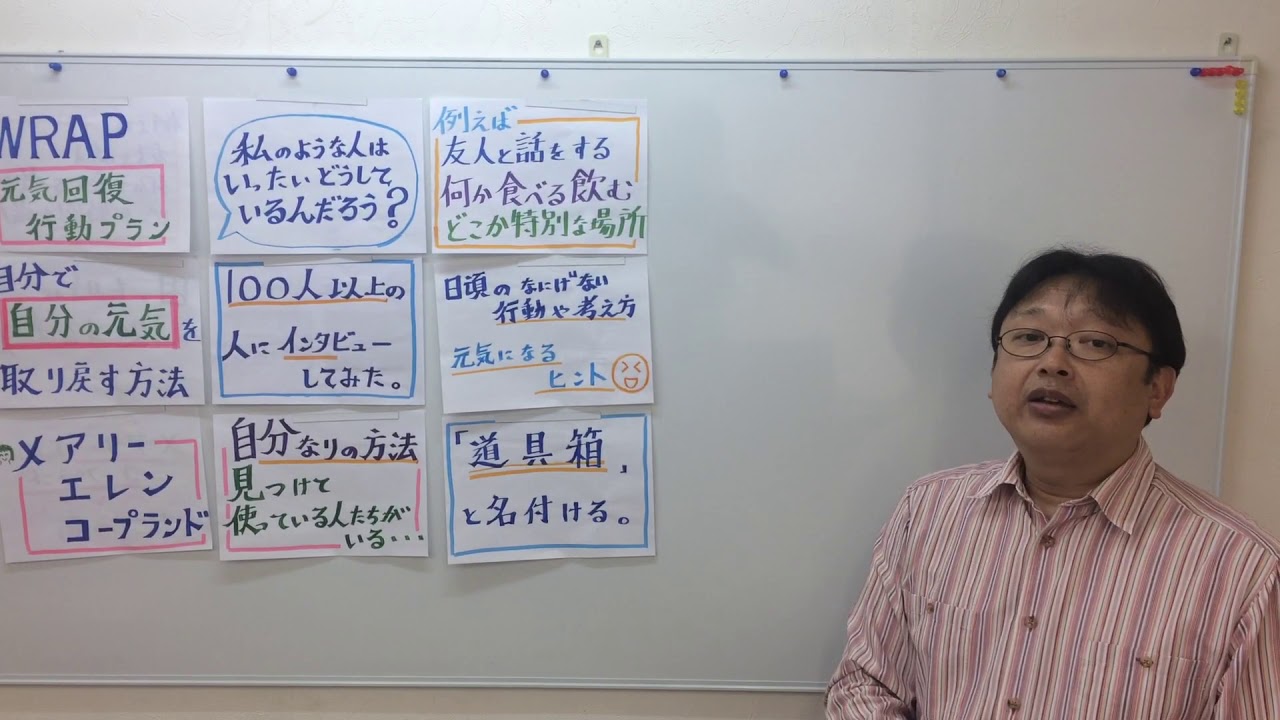 WRAP
元気回復
行動プラン
自分で
自分の元気を
取り戻す方法
メアリー
エレン
コープランド
私のような人は
いったいどうして
いるんだろう?
100人以上の
人にインタビュー
してみた。
自分なりの方法
見つけて
使っている人たちが
いる・・・
例えば
友人と話をする
何か食べる飲む
どこか特別な場所
日頃のなにげない
行動や考え方
元気になる
ヒント
「道具箱」
と名付ける。